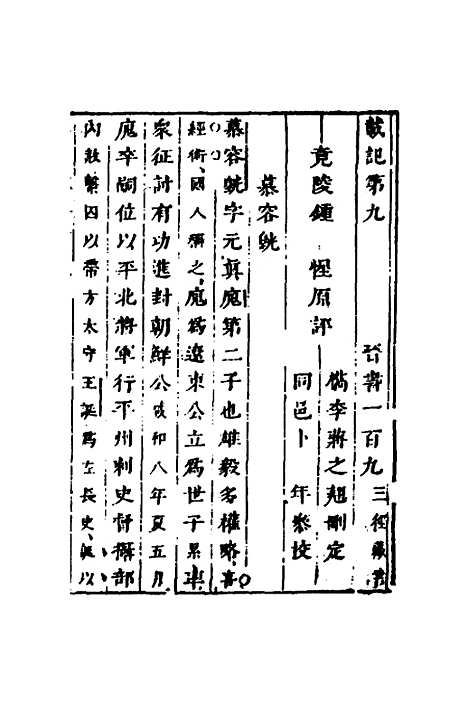 載記第九　晉書一百九　三徑藏書
竟陵鍾　惺原評
檇李蔣之翹刪定
同邑卜　年參校
慕容皝
慕容皝字元真廆第二子也雄毅多權略喜
經術國人稱之廆為遼東公立為世子累率
眾征討有功進封朝鮮公咸和八年夏五月
廆卒嗣位以平北將軍行平州刺史督攝部
內敕繫囚以帶方太守王誕為左長史誕以